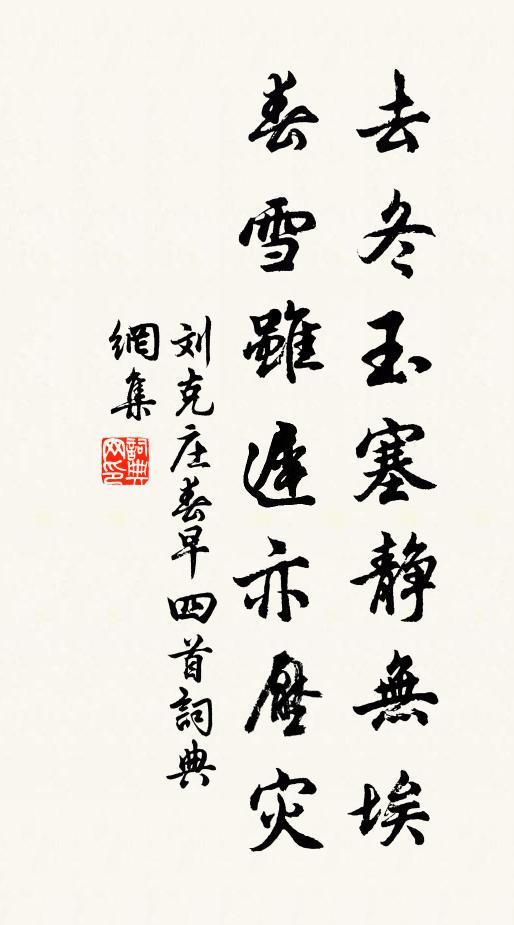 去冬玉塞静無埃
春雪雖遲亦壓災
刘克庄春早四首詞典
網集
詞典網印